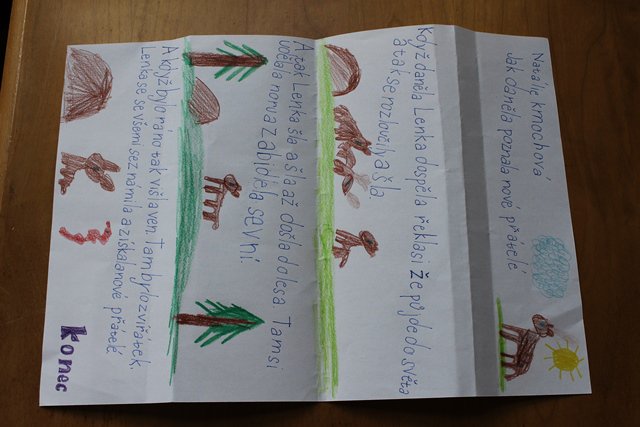 Natálie kmochová
Jak daněla poznala nové přátelé
Když daněla Lenka dospěla řeklasi že půjde do světa
a tak se rozloučila a šla
A tak Lenka šla a šla až došla do lesa. Tam si
udělala noru a zabidlela se v ní.
A když bylo ráno tak vyšla ven. Tam bylo zvířátek.
Lenka se se všemi seznámila a získala nové přátelé
konec